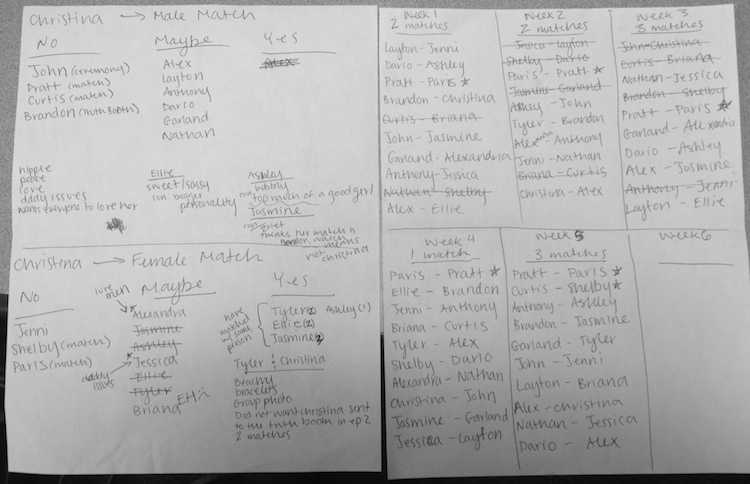 Christina → Male Match
No
John (ceremony)
Pratt (match)
Curtis (match)
Brandon (Truth Booth)
Maybe
Alex
Layton
Anthony
Dario
Garland
Nathan
Yes
Alex
hippie
love
daddy issues
wants everyone to love her
Ellie
sweet/sassy
personality
Ashley
bubbly
too much of a good girl
Jasmine
thinks her match is
means
not christina
Christina → Female Match
No
Jenni
Shelby (match)
Paris (match)
Maybe
Alexandra
Jasmine
Ashley
Jessica
Ellie
Tyler
Briana
daddy issues
Yes
have matched w/ same person
Tyler (2) Ashley (1)
Ellie (2)
Jasmine (2)
Tyler & Christina
Brachy
bracelets
Group photo
Did not want christina sent
to the truth booth in ep 2
2 matches
Week 1
2 matches
Layton - Jenni
Dario - Ashley
Pratt - Paris ☆
Brandon - Christina
Curtis - Briana
John - Jasmine
Garland - Alexandria
Anthony - Jessica
Nathan - Shelby
Alex - Ellie
Week 2
2 matches
Jessica - Layton
Shelby - Dario
Paris - Pratt ★
Jasmine - Garland
Ashley - John
Tyler - Brandon
Alexandria - Anthony
Jenni - Nathan
Briana - Curtis
Christina - Alex
Week 3
3 matches
John - Christina
Curtis - Briana
Nathan - Jessica
Brandon - Shelby
Pratt - Paris ☆
Garland - Alexandria
Dario - Ashley
Alex - Jasmine
Anthony - Jenni
Layton - Ellie
Week 4
1 match
Paris - Pratt ☆
Ellie - Brandon
Jenni - Anthony
Briana - Curtis
Tyler - Alex
Shelby - Dario
Alexandra - Nathan
Christina - John
Jasmine - Garland
Jessica - Layton
Week 5
3 matches
Pratt - Paris ☆
Curtis - Shelby ☆
Anthony - Ashley
Brandon - Jasmine
Garland - Tyler
John - Jenni
Layton - Briana
Alex - Christina
Nathan - Jessica
Dario - Alex
Week 6